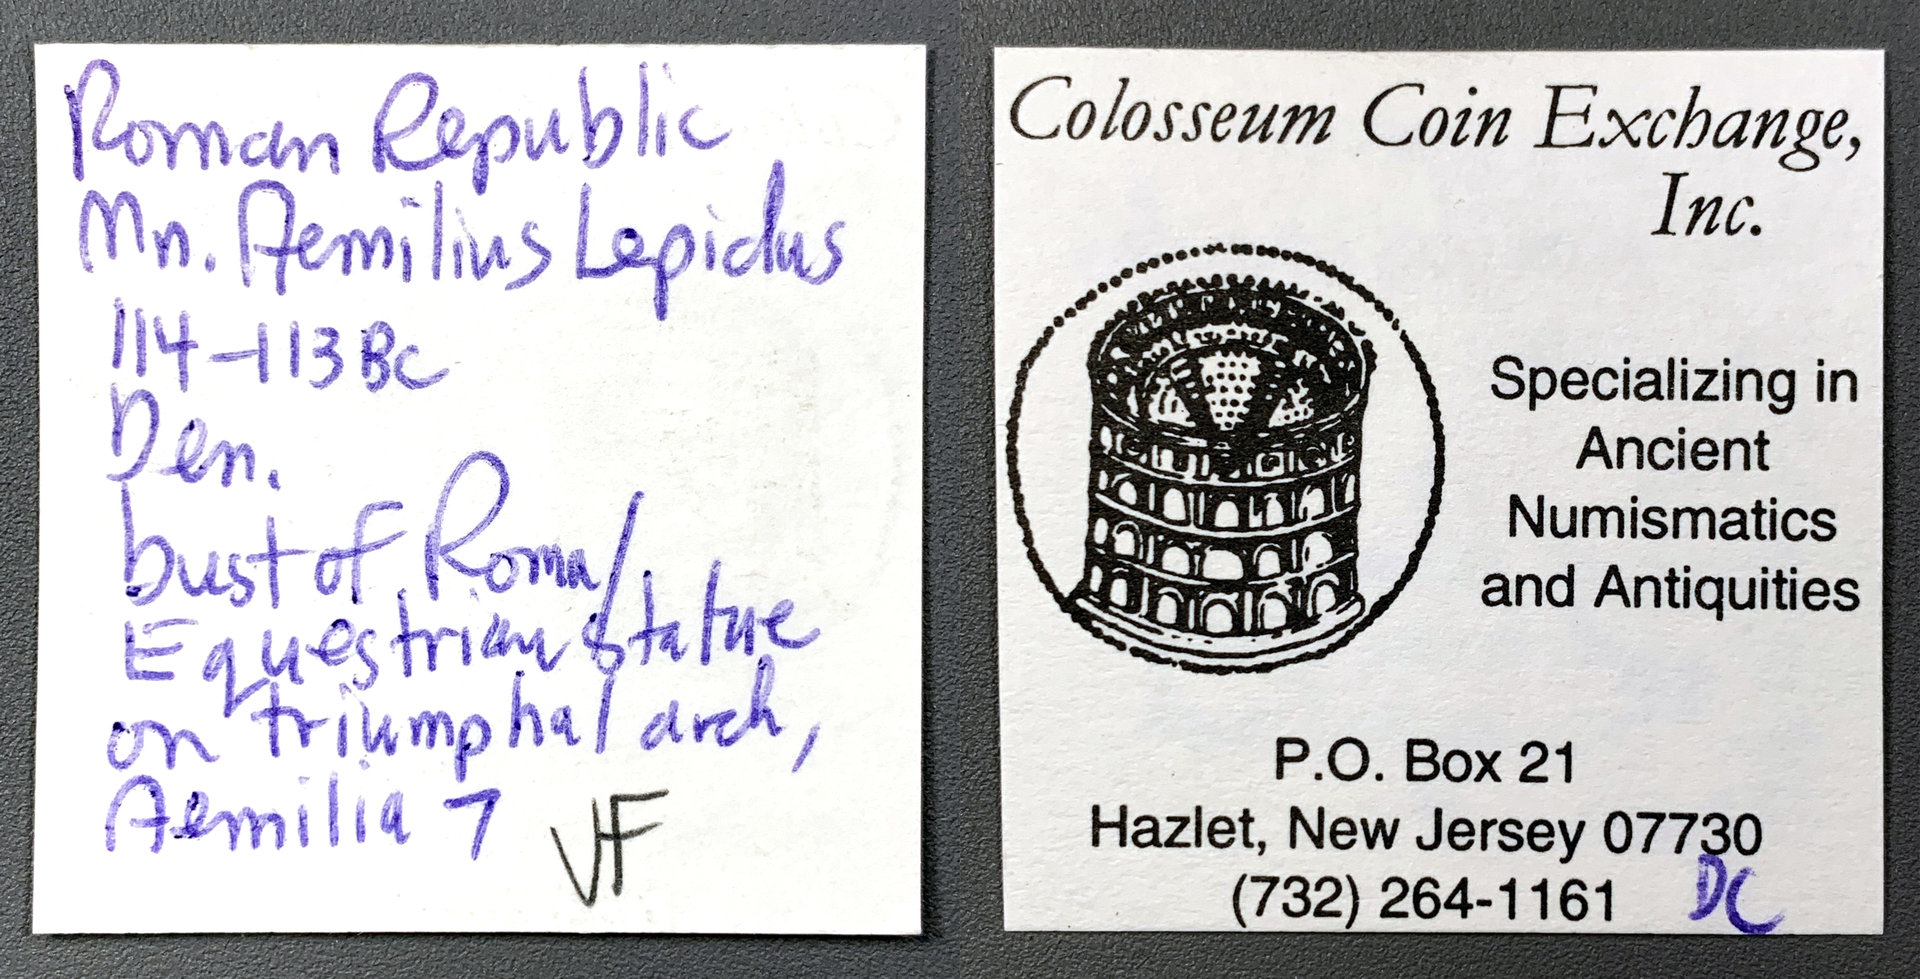 Roman Republic
Mn. Aemilius Lepidus
114-113 BC
Den.
bust of Roma/
Equestrian statue
on triumphal arch,
Aemilia 7
VF
Colosseum Coin Exchange,
Inc.
Specializing in
Ancient
Numismatics
and Antiquities
P.O. Box 21
Hazlet, New Jersey 07730
(732) 264-1161
DC